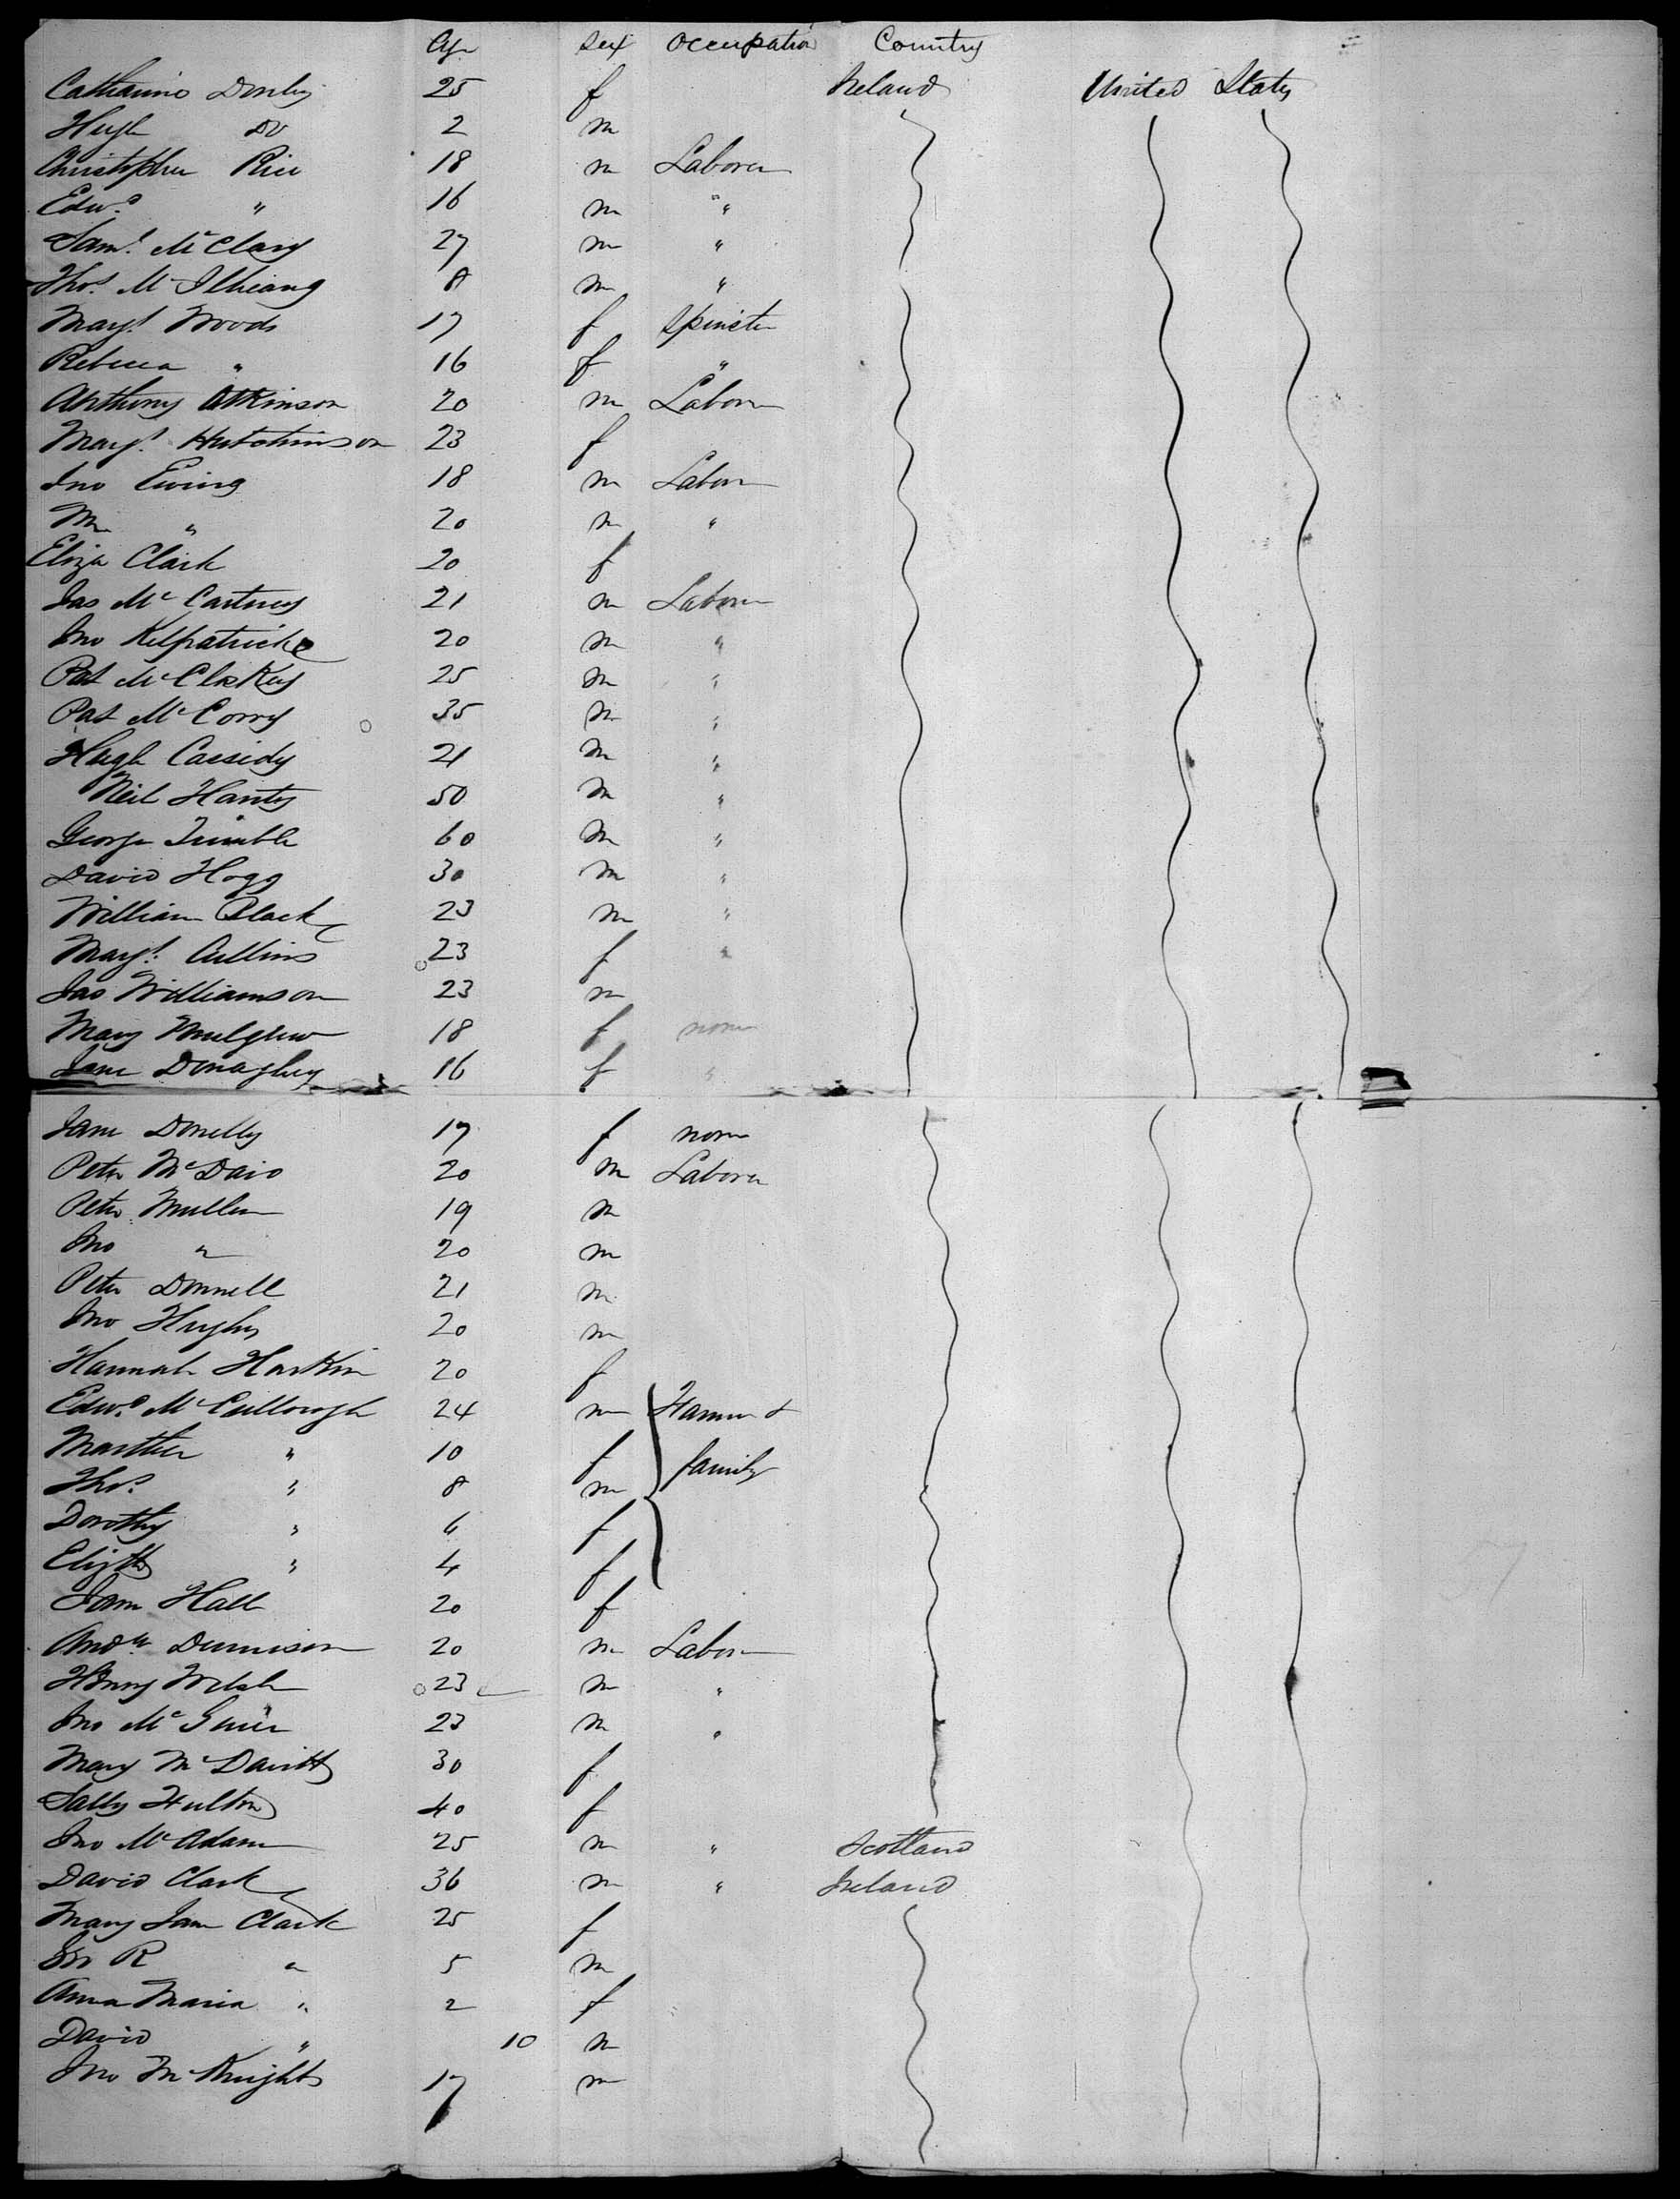 Age Sex Occupation Country
Catharine Donly 25 f Ireland United States
Hugh Do 2 m
Christopher Rice 18 m Laborer
Edwd " 16 m " "
Saml McClary 27 m "
Thos M 8 m "
Margt Woods 17 f Spinster
Rebecca " 16 f "
Anthony Atkinson 20 m Labore
Margt Hutchinson 23 f
Jno Ewing 18 m Labor
Wm " 20 m "
Eliza Clark 20 f
Jas McCartney 21 m Labore
Jno Kilpatricke 20 m "
Pat McCloKey 25 m "
Pat McCorry 35 m "
Hugh Cassidy 21 m "
Neil Hanty 50 m "
George Trimble 60 m "
David Hogg 30 m "
William Black 23 m "
Margt Cullins 23 f "
Jas Williamson 23 m
Mary Mulgrew 18 f none
Jane Donaghey 16 f "
Jane Donelly 17 f none
Peter McDaid 20 m Laborer
Peter Mullen 19 m
Jno " 20 m
Peter Donnell 21 m
Jno Hughes 20 m
Hannah Harkin 20 f
Edwd McCullough 24 m Farmer &
Marther " 10 f family
Thos " 8 m
Dorothy " 6 f
Elizth " 4 f
Jane Hall 20 f
Andw Dennison 20 m Labor
Henry Welsh 23 m "
Jno McGuire 23 m "
Mary McDavitt 30 f
Sally Fulton 40 f
Jno McAdam 25 m " Scotland
David Clark 36 m " Ireland
Mary Jane Clark 25 f
Jno R " 5 m
Anna Maria " 2 f
David " 10 m
Jno McKnight 17 m